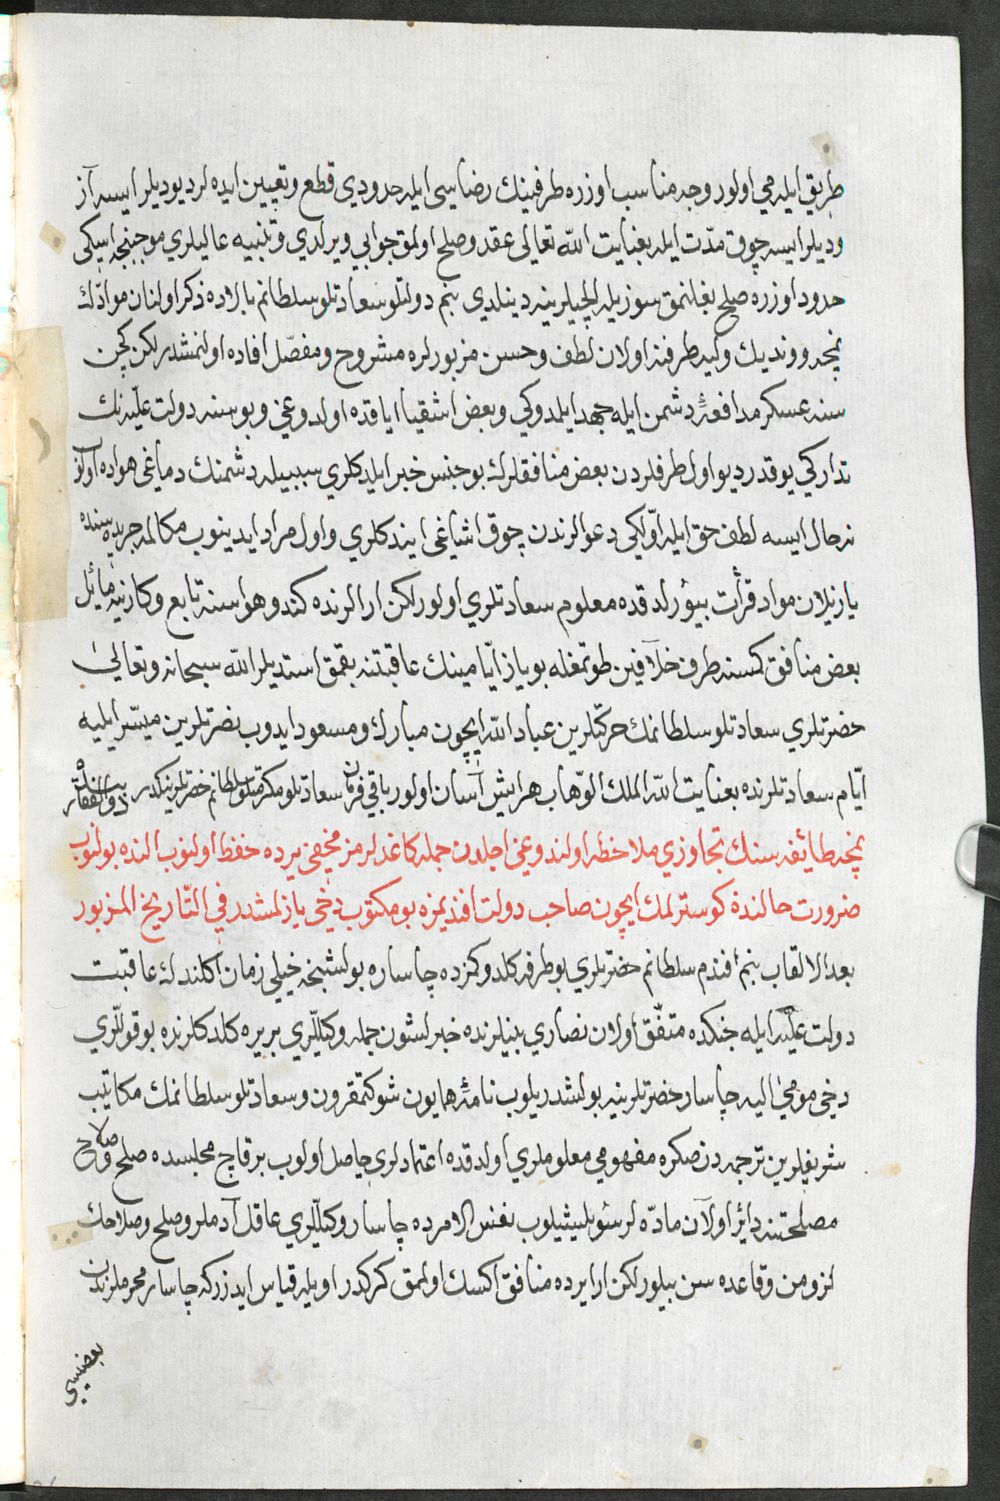 طريق ايله مي اولور وجه مناسب اوزره طرفينك رضاسي ايله حدودي قطع وتعيين ايده لر ديو ديلر ايسه آز
وديلر ايسه چوق مدّت ايله بعنايت اللّه تعالى عقد وصلح اولمق جوابي ويرلدي وتنبيه عاليلري موجبنجه ايكي
حدود اوزره صلح بغلنمق سوزيله ايلچيلرينه دينلدي بنم دولتلو سعادتلو سلطانم بالاده ذكر اولنان موادّك
نيجه ووندیك وليه طرفنه اولان لطف وحسن مزبورلره مشروح ومفصّل افاده اولنمشدر لكن كچن
سنه عسكر مدافعۀ دشمن ايله جهد ايلدوكي وبعض اشقيا اياقده اولدوغي وبو سنه دولت عليّه نك
تداركي يوقدر ديو اول طرفلردن بعض منافقلرك بو جنس خبر ايلدكلري سببيله دشمنك دماغي هواده اولو
نه حال ايسه لطف حق ايله اوّلكي دعوالرندن چوق اشاغي ايندكلري واول مراد ايدينوب مكالمه جريده سنده
يازيلان مواد قرأت بيورلدقده معلوم سعادتلري اولور لكن ارالرنده كندو هواسنه تابع وكارينه مائل
بعض منافق كمسنه طرف خلافين طوتمغله بو ياز ايّامينك عاقبتنه بقمق استديلر اللّه سبحانه وتعالى
حضرتلري سعادتلو سلطانمك حركتلرين عباد اللّه ايچون مبارك ومسعود ايدوب نصرتلرين ميسّر ايليه
ايّام سعادتلرنده بعنايت اللّه الملك الوهّاب هر ايش آسان اولور باقي فرمان سعادتلو مكرمتلو سلطانم حضرتلرينكدر بنده ذو الفقار
نمچه طائفه سنك تجاوزي ملاحظه اولندوغي اجلدن جمله كاغدلرمز مخفي يرده حفظ اولنوب النده بولنوب
ضرورت حالنده كوسترلمك ايچون صاحب دولت افنديمزه بو مكتوب دخي يازلمشدر في التّاريخ المزبور
بعد الالقاب بنم افندم سلطانم حضرتلري بو طرفه كلدوكزده چاساره بولشنجه خيلي زمان اكلندك عاقبت
دولت عليّه ايله جنكده متفّق اولان نصاري بينلرنده خبرلشون جمله وكيللري بر يره كلدكلرنده بو قوللري
دخي مومى اليه چاسار حضرتلرينه بولشدريلوب نامۀ همايون شوكتمقرون وسعادتلو سلطانمك مكاتيب
شريفلرين ترجمه دن صكره مفهومي معلوملري اولدقده اعتمادلري حاصل اولوب بر قاچ مجلسده صلح وصلاح
مصلحتنه دائر اولان مادّه لر سويلشيلوب نفس الامرده چاسار وكيللري عاقل آدملر وصلح وصلاحك
لزومن وقاعده سن بيلور لكن ارايرده منافق اكسك اولمق كركدر اويله قياس ايدرز كه چاسار محرملرندن
بعضيسي